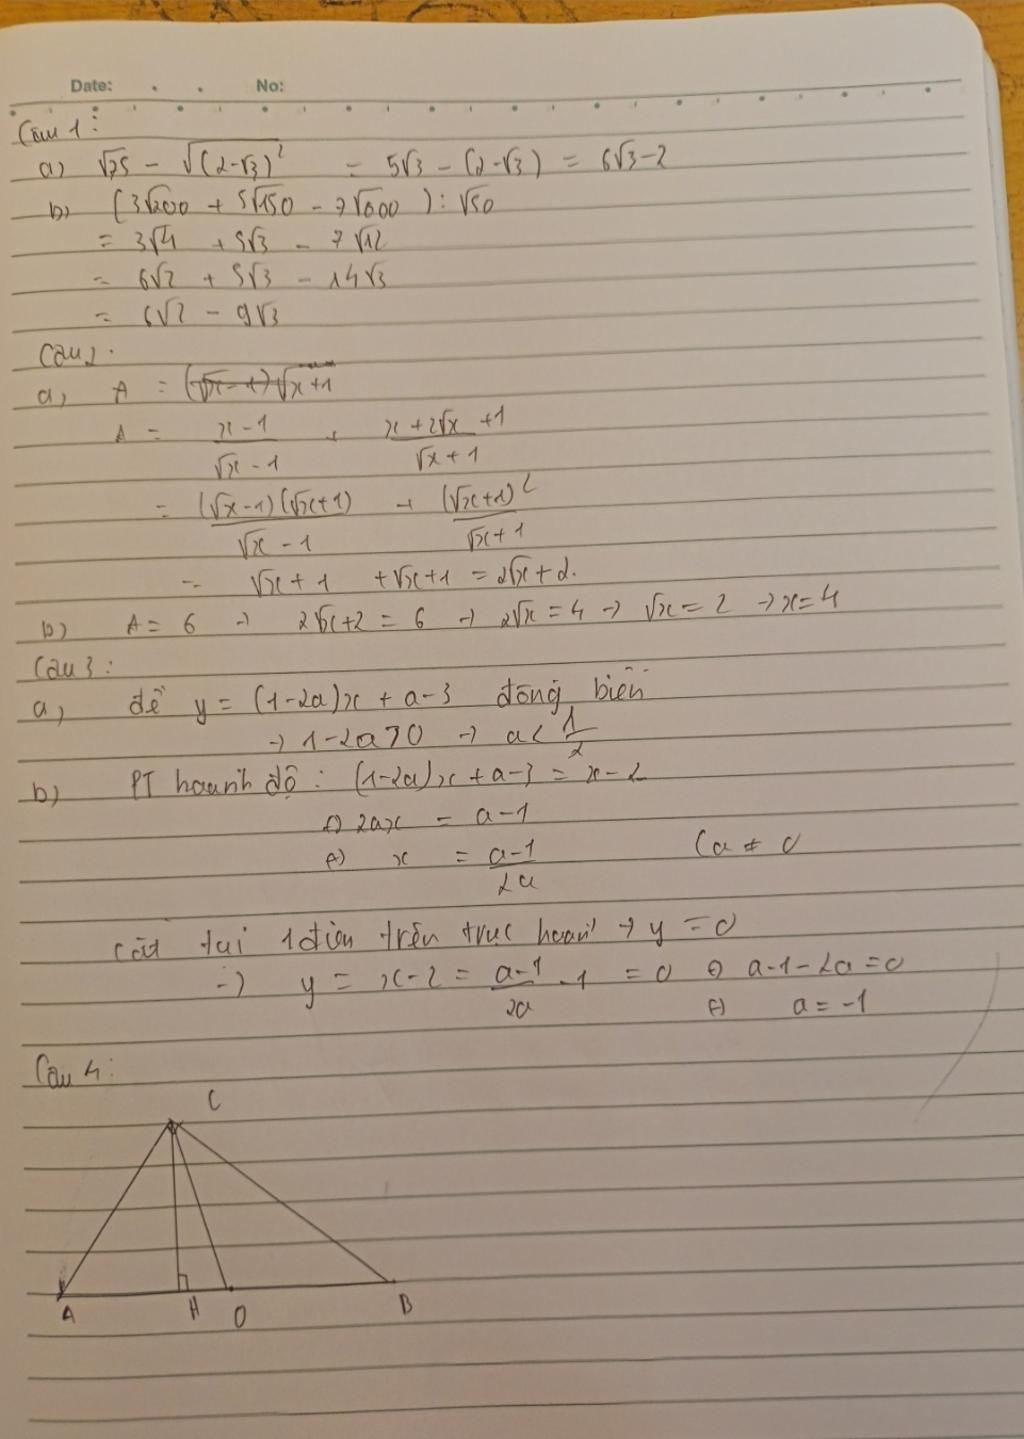 Date: No:
Câu 1:
a) √75 - √(2-√3)² = 5√3 - (2-√3) = 6√3-2
b) (3√200 + 5√150 - 7√600) : √50
= 3√4 + 5√3 - 7√12
= 6√2 + 5√3 - 14√3
= 6√2 - 9√3
Câu 2.
a, A = (√x-1)√x+1
A = x-1/√x-1 + x+2√x+1/√x+1
= (√x-1)(√x+1)/√x-1 + (√x+1)²/√x+1
= √x+1 +√x+1 = 2√x+2.
b) A = 6 → 2√x+2 = 6 → 2√x = 4 → √x = 2 → x = 4
Câu 3:
a, để y = (1-2a)x + a-3 đồng biến
→ 1-2a>0 → a< 1/2
b) PT hoành độ: (1-2a)x + a-3 = x-2
⇔ 2ax = a-1
⇔ x = a-1/2a (a ≠ 0
cắt tại 1 điểm trên trục hoành → y = 0
→ y = x-2 = a-1/2a -1 = 0 ⇔ a-1-2a=0
⇔ a = -1
Câu 4:
C
A H O B